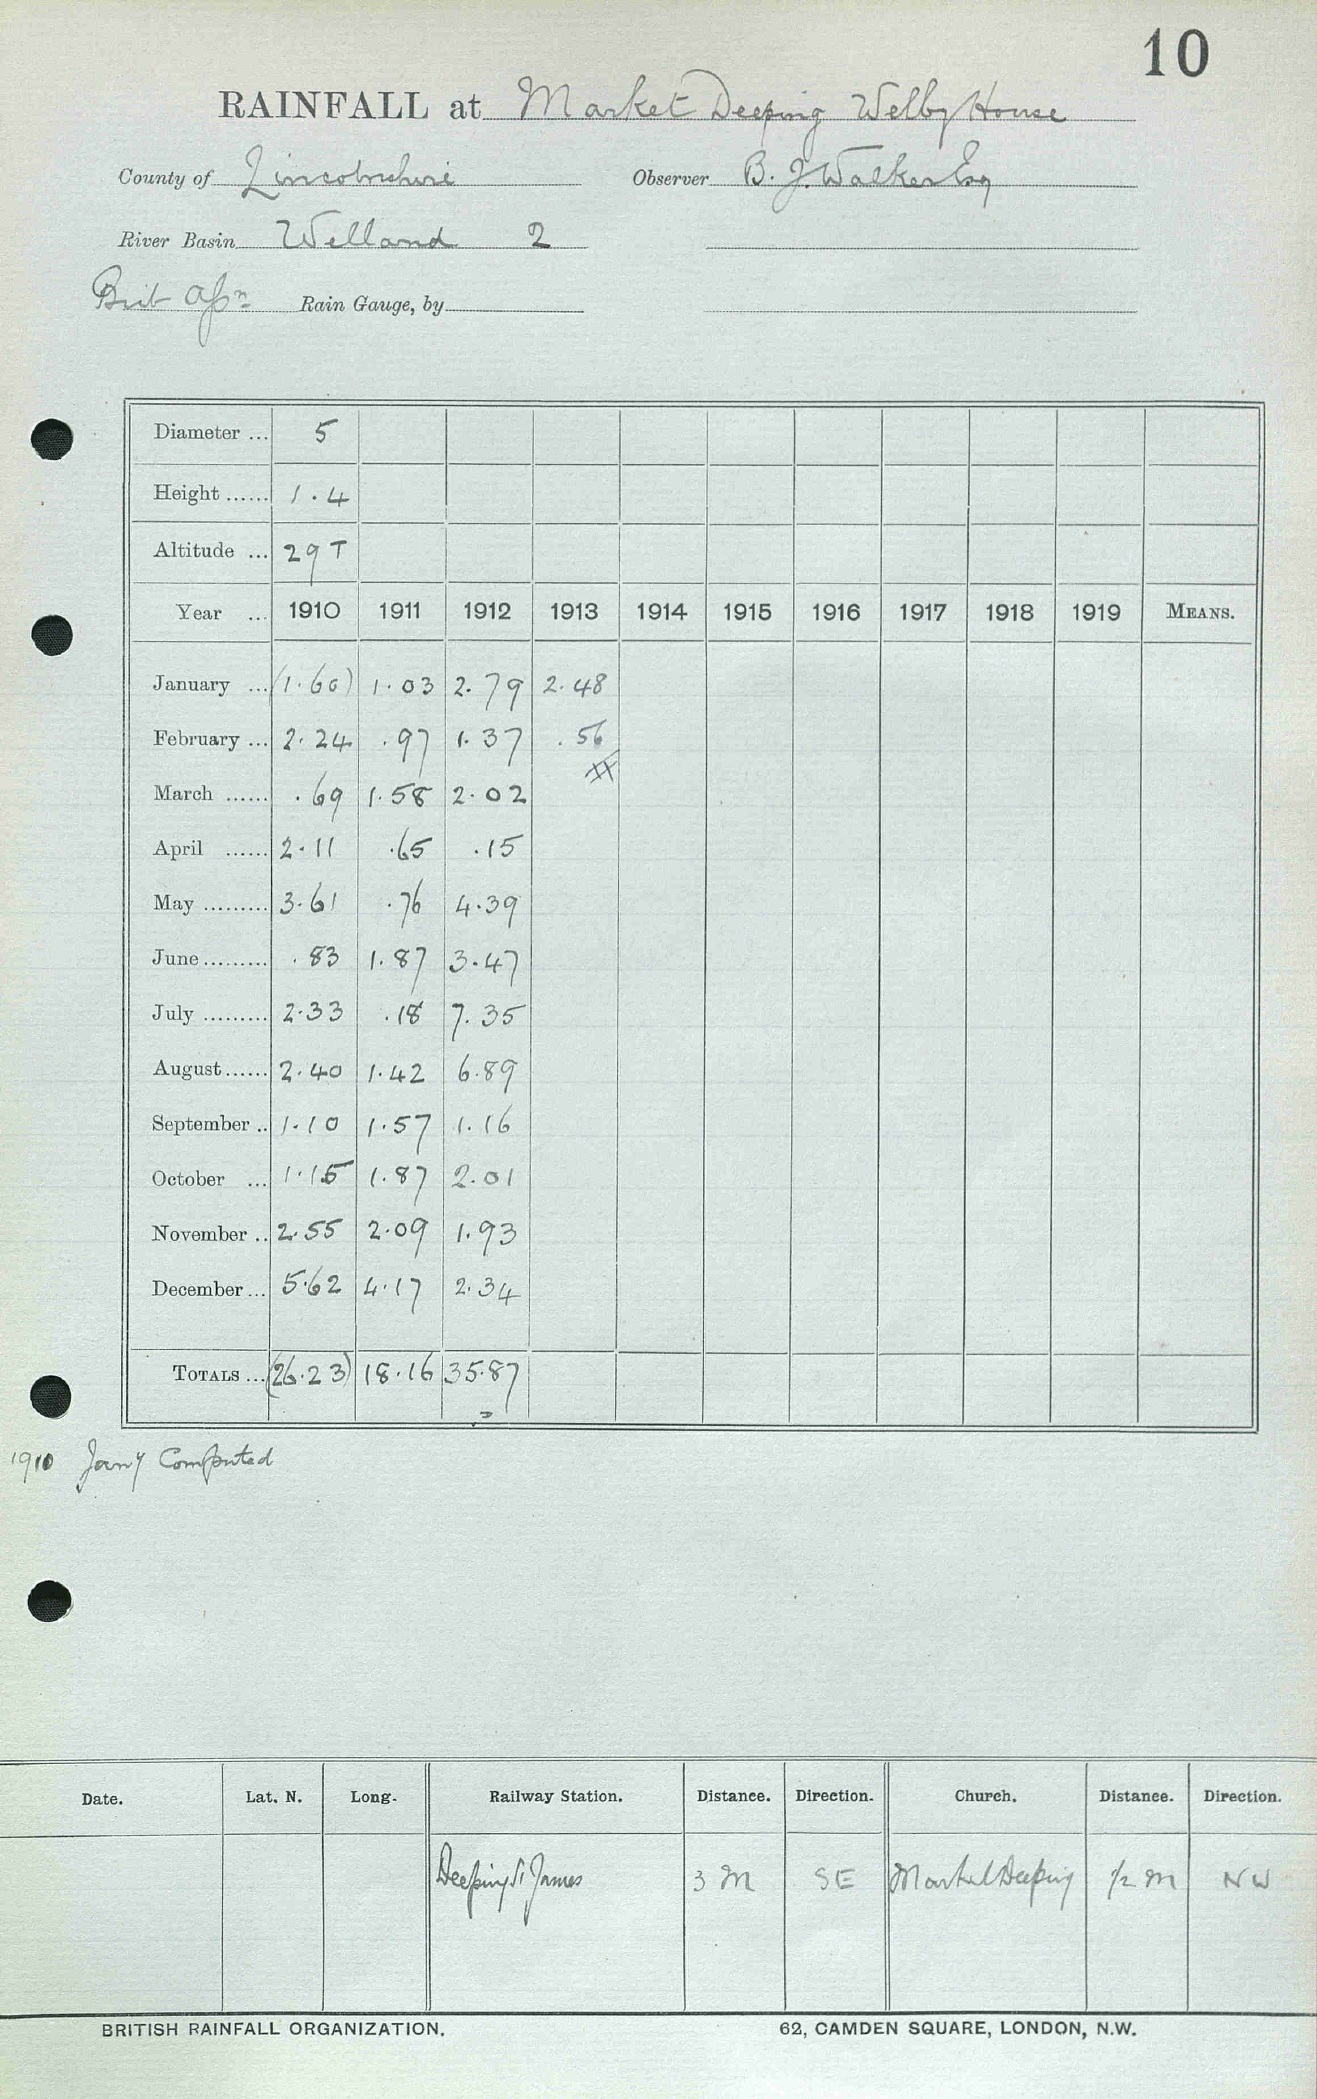 10
RAINFALL at Market Deeping Welby House
County of Lincolnshire Observer B. J. Walker Esq
River Basin Welland 2
Brit Assn Rain Gauge, by
Diameter ... 5
Height ...... 1.4
Altitude ... 29 T
Year ... 1910 1911 1912 1913 1914 1915 1916 1917 1918 1919 MEANS.
January ... (1.60) 1.03 2.79 2.48
February ... 2.24 .97 1.37 .56
March ...... .69 1.58 2.02
April ...... 2.11 .65 .15
May ......... 3.61 .76 4.39
June ......... .83 1.87 3.47
July ......... 2.33 .18 7.35
August ...... 2.40 1.42 6.89
September .. 1.10 1.57 1.16
October ... 1.15 1.87 2.01
November .. 2.55 2.09 1.93
December ... 5.62 4.17 2.34
TOTALS ... (26.23) 18.16 35.87
1910 Jany Computed
Date. Lat. N. Long. Railway Station. Distance. Direction. Church. Distance. Direction.
Deeping St James 3 M SE Market Deeping 1/2 M NW
BRITISH RAINFALL ORGANIZATION. 62, CAMDEN SQUARE, LONDON, N.W.